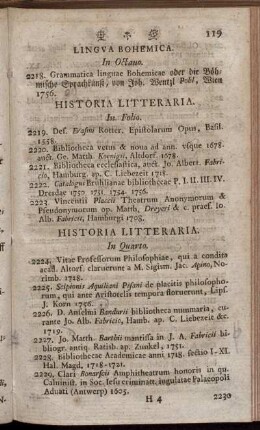 119
LINGVA BOHEMICA.
In Octavo.
2218. Grammatica linguae Bohemicae oder die Böh-
mische Sprachkunst, von Joh. Wentzl Pohl, Wien
1756.
HISTORIA LITTERARIA.
In Folio.
2219. Des. Erasmi Rotter. Epistolarum Opus, Basil.
1558.
2220. Bibliotheca vetus & noua ad ann. vsque 1678.
auct. Ge. Matth. Koenigii, Altdorf. 1678.
2221. Bibliotheca ecclesiastica, auct. Jo. Albert. Fabri-
cio, Hamburg. ap. C. Liebezeit 1718.
2222. Catalogus Bruhlianae bibliothecae P. I. II. III. IV.
Dresdae 1750 1751. 1754 1756.
2223 Vincentii Placcii Theatrum Anonymorum &
Pseudonymorum op. Matth. Dreyeri & c. praef. Jo.
Alb. Fabricii, Hamburgi 1708.
HISTORIA LITTERARIA.
In Quarto.
2224. Vitae Professorum Philosophiae, qui a condita
acad. Altorf. claruerunt a M. Sigism. Jac. Apino, No-
rimb. 1728.
2225. Scipionis Aquiliani Pisani de placitis philosopho-
rum, qui ante Aristotelis tempora floruerunt, Lips.
J. Korn 1756.
2226. D. Anselmi Banduri bibliotheca nummaria, cu-
rante Jo. Alb. Fabricio, Hamb. ap. C. Liebezeit &c.
1719.
2227. Jo. Matth. Barthii mantissa in J. A. Fabricii bi-
bliogr. antiq. Ratisb. ap. Zunkel, 1751.
2228. Bibliothecae Academicae anni 1718. sectio I-XI.
Hal. Magd. 1718-1721.
2229. Clari Bonarscii Amphitheatrum honoris in quo
Caluinist. in Soc. Jesu criminatt. iugulatae Palaeopoli
Aduati (Antwerp) 1605.
H 4
2230